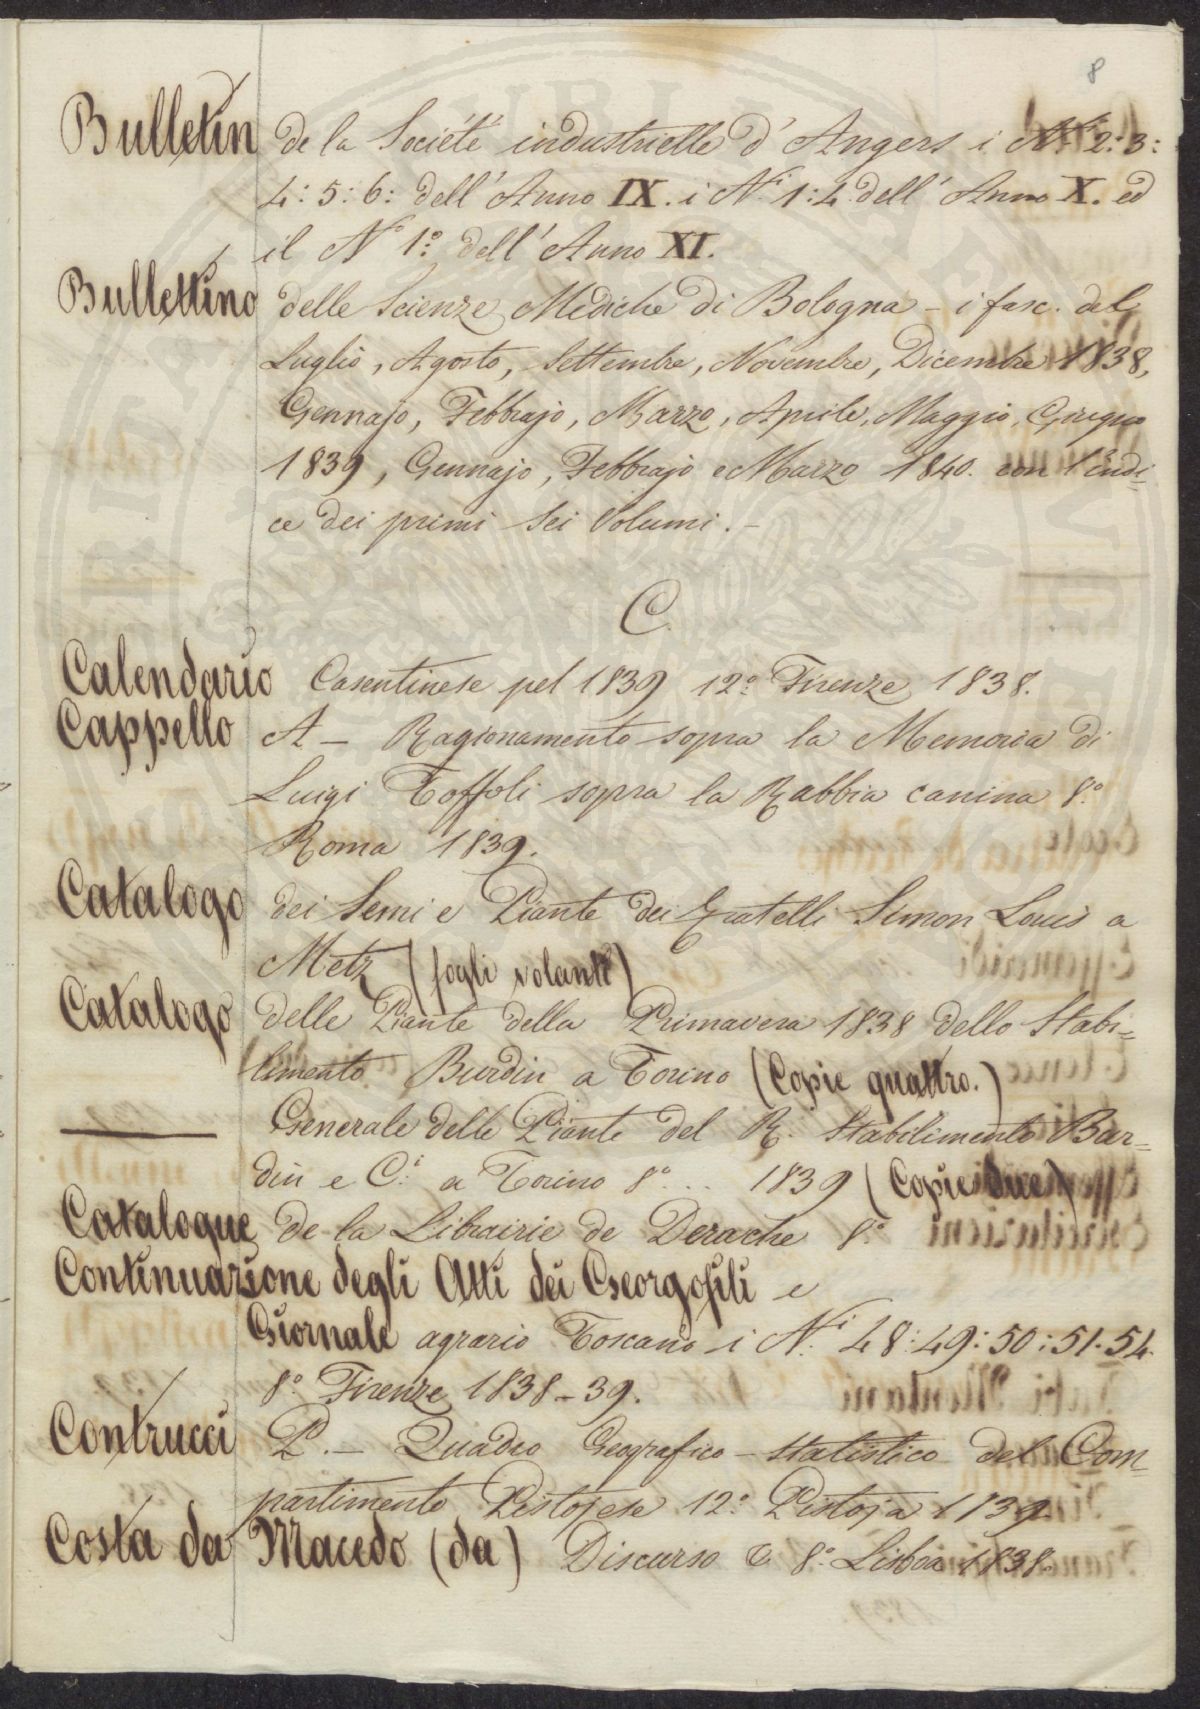 8
Bulletin de la Société industrielle d'Angers i N.i 2: 3:
4: 5: 6: dell'Anno IX. i N.i 1: 4. dell'Anno X. ed
il N.o 1.o dell'Anno XI.
Bullettino delle Scienze Mediche di Bologna - i fasc. del
Luglio, Agosto, Settembre, Novembre, Dicembre 1838,
Gennajo, Febbrajo, Marzo, Aprile, Maggio, Giugno
1839, Gennajo, Febbrajo e Marzo 1840. con l'Indi=
ce dei primi Sei Volumi. -
C.
Calendario Casentinese pel 1839 12.o Firenze 1838.
Cappello A - Ragionamento sopra la Memoria di
Luigi Toffoli sopra la Rabbia canina 8.o
Roma 1839.
Catalogo dei Semi e Piante dei Fratelli Simon Louis a
Metz (fogli volanti)
Catalogo delle Piante della Primavera 1838 dello Stabi=
limento Burdin a Torino (Copie quattro.)
——— Generale delle Piante del R. Stabilimento Bar=
din e C.i a Torino 8.o ... 1839 (Copie due)
Catalogue de la Librairie de Derache 8.o
Continuazione degli Atti dei Georgofili e
Giornale agrario Toscano i N.i 48: 49: 50: 51. 54.
8.o Firenze 1838-39.
Contrucci P. - Quadro Geografico-statistico del Com=
partimento Pistojese 12.o Pistoja 1839.
Costa da Macedo (da) Discurso 8.o Lisboa 1838.